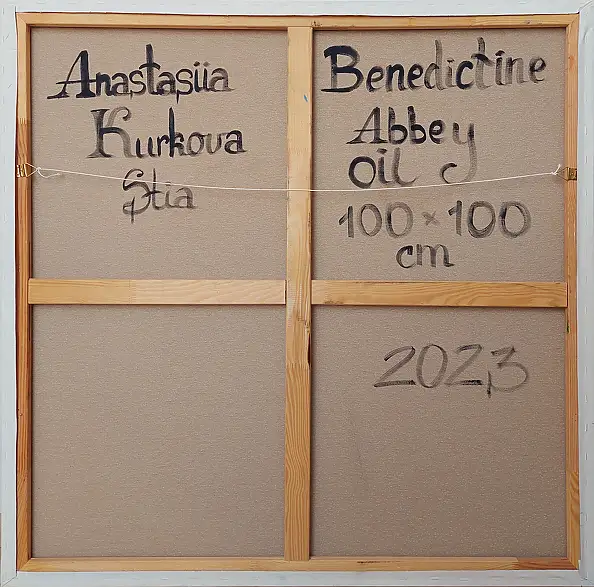 Anastasiia
Kurkova
Stia
Benedictine
Abbey
oil
100 × 100
cm
2023